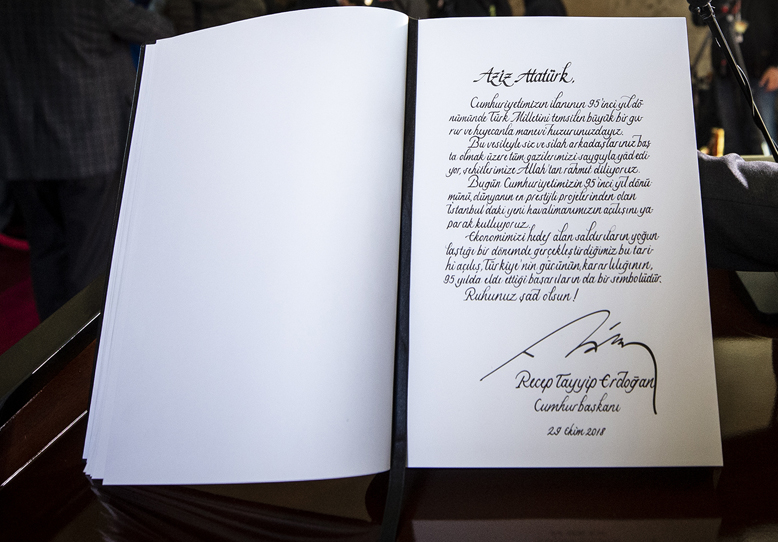 Aziz Atatürk,
Cumhuriyetimizin ilanının 95'inci yıl dö-
nümünde Türk Milletini temsilen büyük bir gu-
rur ve heyecanla manevi huzurunuzdayız.
Bu vesileyle siz ve silah arkadaşlarınız baş
ta olmak üzere tüm gazilerimizi saygıyla yâd edi-
yor, şehitlerimize Allah'tan rahmet diliyoruz.
Bugün Cumhuriyetimizin 95'inci yıl dönü
münü, dünyanın en prestijli projelerinden olan
İstanbul'daki yeni havalimanımızın açılışını ya-
parak kutluyoruz.
Ekonomimizi hedef alan saldırıların yoğun
laştığı bir dönemde gerçekleştirdiğimiz bu tari-
hi açılış, Türkiye'nin gücünün, kararlılığının,
95 yılda elde ettiği başarıların da bir sembolüdür.
Ruhunuz şad olsun!
Recep Tayyip Erdoğan
Cumhurbaşkanı
29 Ekim 2018